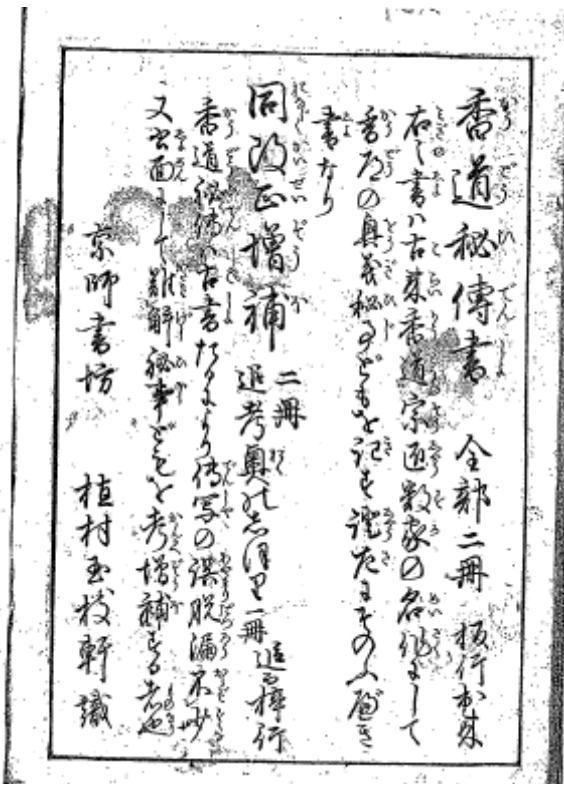 香道秘傳書 全部二冊 板行出来
右之書ハ古来香道宗匠数家の名作にして
香道の奥義秘事どもを記す誠たまものといふべき
書なり
同改正増補 二冊 追考奥の志をり一冊 追而梓行
香道秘傳ハ古書たるにより傳写の誤脱漏不少
又書面にして難解秘事どもを考増補する者也
京師書坊 植村玉枝軒識